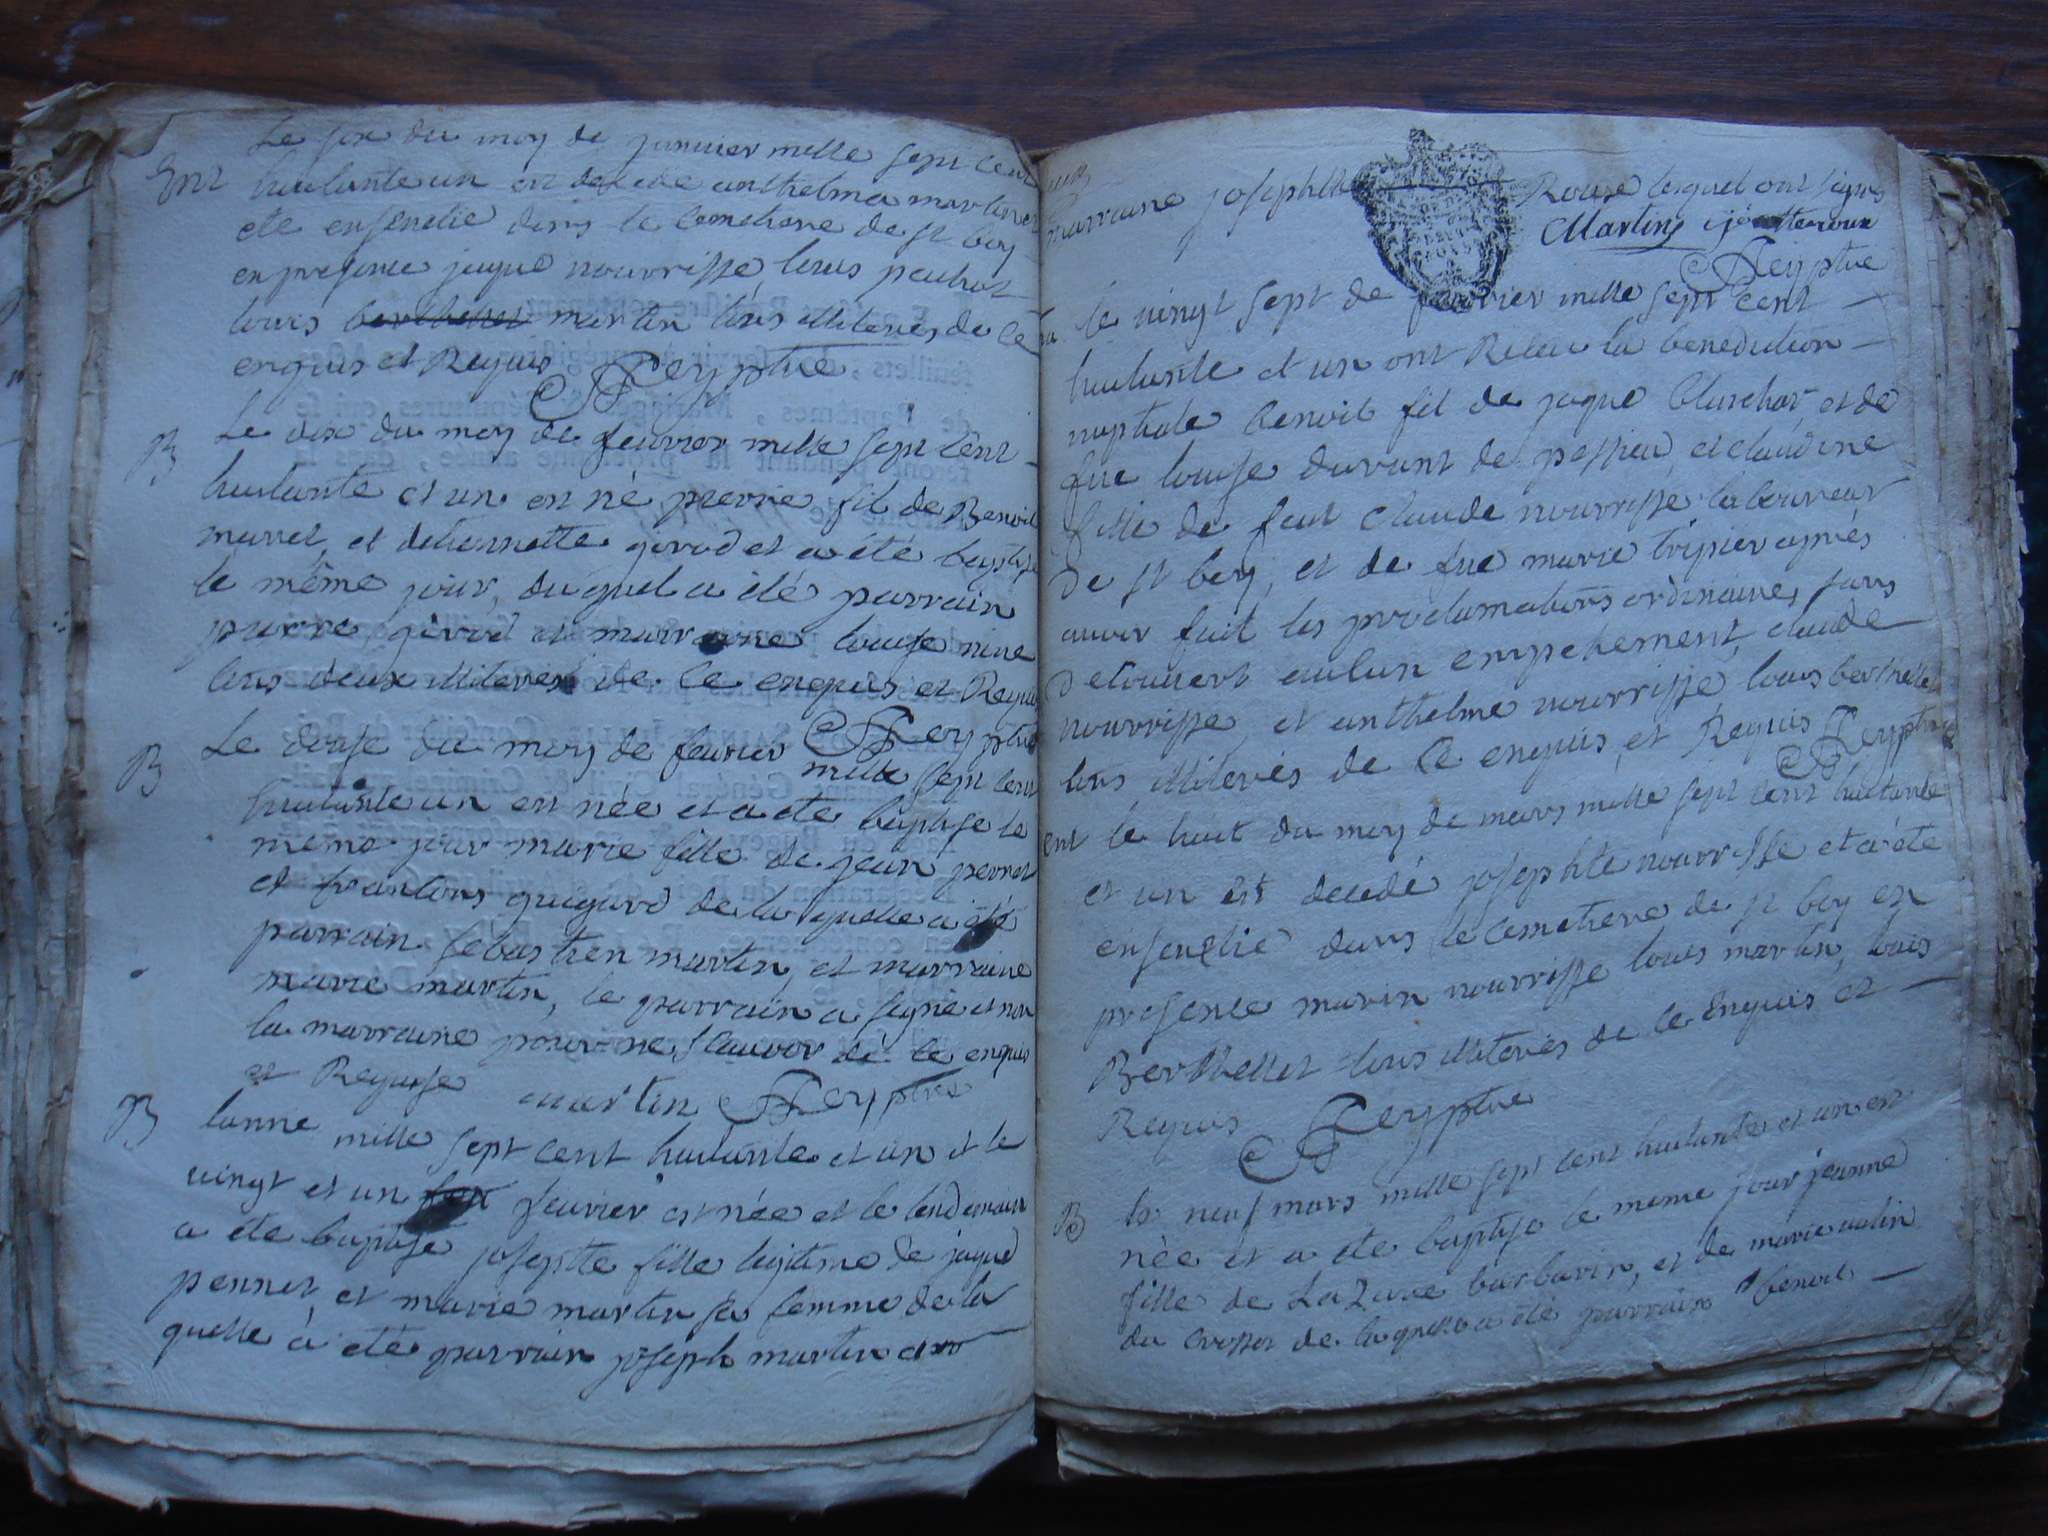 Le six du moy de janvier mille sept cent
Ent huitante un est decede anthelma martinet
ete ensevelie dans le cemetiere de st boy
en presence jaque nourrisse, louis peuhot
louis berthellet martin tous illiteres de ce
enquis et Requis Rey ptre
B Le dix du moy de fevrier mille sept cent
huitante et un est né pierre fil de Benoit
murret, et detiennette girod et a été baptisé
le même jour, duquel a été parrain
pierre girod et marraine louise nine
tous deux illiterés de ce enquis et Requis
Rey ptre
B Le douse du moy de fevrier mille sept cent
huitante un est née et a ete baptisé le
meme jour marie fille de jean pernet
et francoise guigard de la quelle a été
parrain sebastien martin, et marraine
marie martin, le parrain a signé et non
la marraine pour ne scavoir de ce enquis
et Requise martin Rey ptre
B lanne mille sept cent huitante et un et le
vingt et un fevrier est née et le lendemain
a ete baptisé josephte fille legitime de jaque
pernet, et marie martin sa femme de la
quelle a été parrain joseph martin et
marraine josephte Roux lequel ont signé
Martin
Rey ptre
le vingt sept de fevrier mille sept cent
huitante et un ont Receu la benediction
nuptiale benoit fil de jaque bluchot et de
fue louise durant de pessieu, et claudine
fille de feut claude nourrisse laboureur
de st boy, et de fue marie tripier après
avoir fait les proclamations ordinaires, sans
decouvert aucun empechement, claude
nourrisse, et anthelme nourrisse, louis berthellet
tous illiterés de ce enquis, et Requis Rey ptre
ent le huit du moy de mars mille sept cent huitante
et un est decedé josephte nourrisse et a été
ensevelie dans le cemetiere de st boy en
presence marin nourrisse louis martin, louis
Berthellet tous illiterés de ce Enquis et
Requis Rey ptre
B le neuf mars mille sept cent huitante et un est
née et a ete baptisé le meme jour jeanne
fille de Lazare barbarin, et de marie
du de la quelle a été parrain benoit